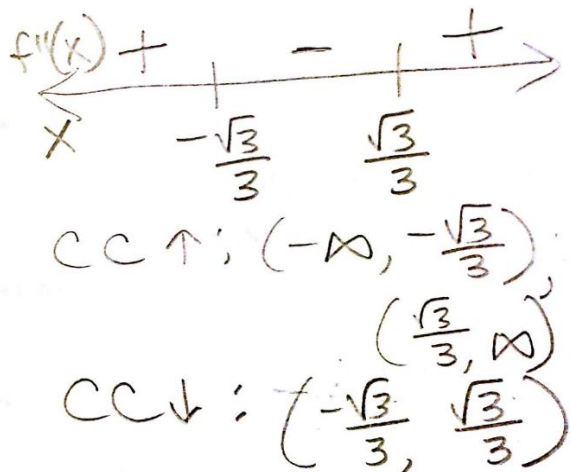 f''(x) + - +
x -√3/3 √3/3
CC↑: (-∞, -√3/3),
(√3/3, ∞)
CC↓: (-√3/3, √3/3)